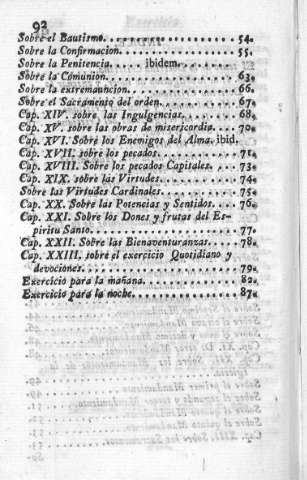 92
Sobre el Bautismo. . . . . . . . . . . . . . . . 54.
Sobre la Confirmacion. . . . . . . . . . . . . . 55.
Sobre la Penitencia. . . . . ibidem. . . . . . . .
Sobre la Comunion. . . . . . . . . . . . . . . . 63.
Sobre la extremauncion. . . . . . . . . . . . . . 66.
Sobre el Sacramento del orden. . . . . . . . . . . 67.
Cap. XIV. sobre las Ingulgencias. . . . . . . . . 68.
Cap. XV. sobre las obras de misericordia. . . . 70.
Cap. XVI. Sobre los Enemigos del Alma. ibid.
Cap. XVII. sobre los pecados. . . . . . . . . . . 71.
Cap. XVIII. Sobre los pecados Capitales. . . 73.
Cap. XIX. sobre las Virtudes. . . . . . . . . . . 74.
Sobre las Virtudes Cardinales. . . . . . . . . . . 75.
Cap. XX. Sobre las Potencias y Sentidos. . . . 76.
Cap. XXI. Sobre los Dones y frutas del Es-
piritu Santo. . . . . . . . . . . . . . . . . . 77.
Cap. XXII. Sobre las Bienaventuranzas. . . . . 78.
Cap. XXIII. sobre el exercicio Quotidiano y
devociones. . . . . . . . . . . . . . . . . . . 79.
Exercicio para la mañana. . . . . . . . . . . . 82.
Exercicio para la noche. . . . . . . . . . . . . 87.